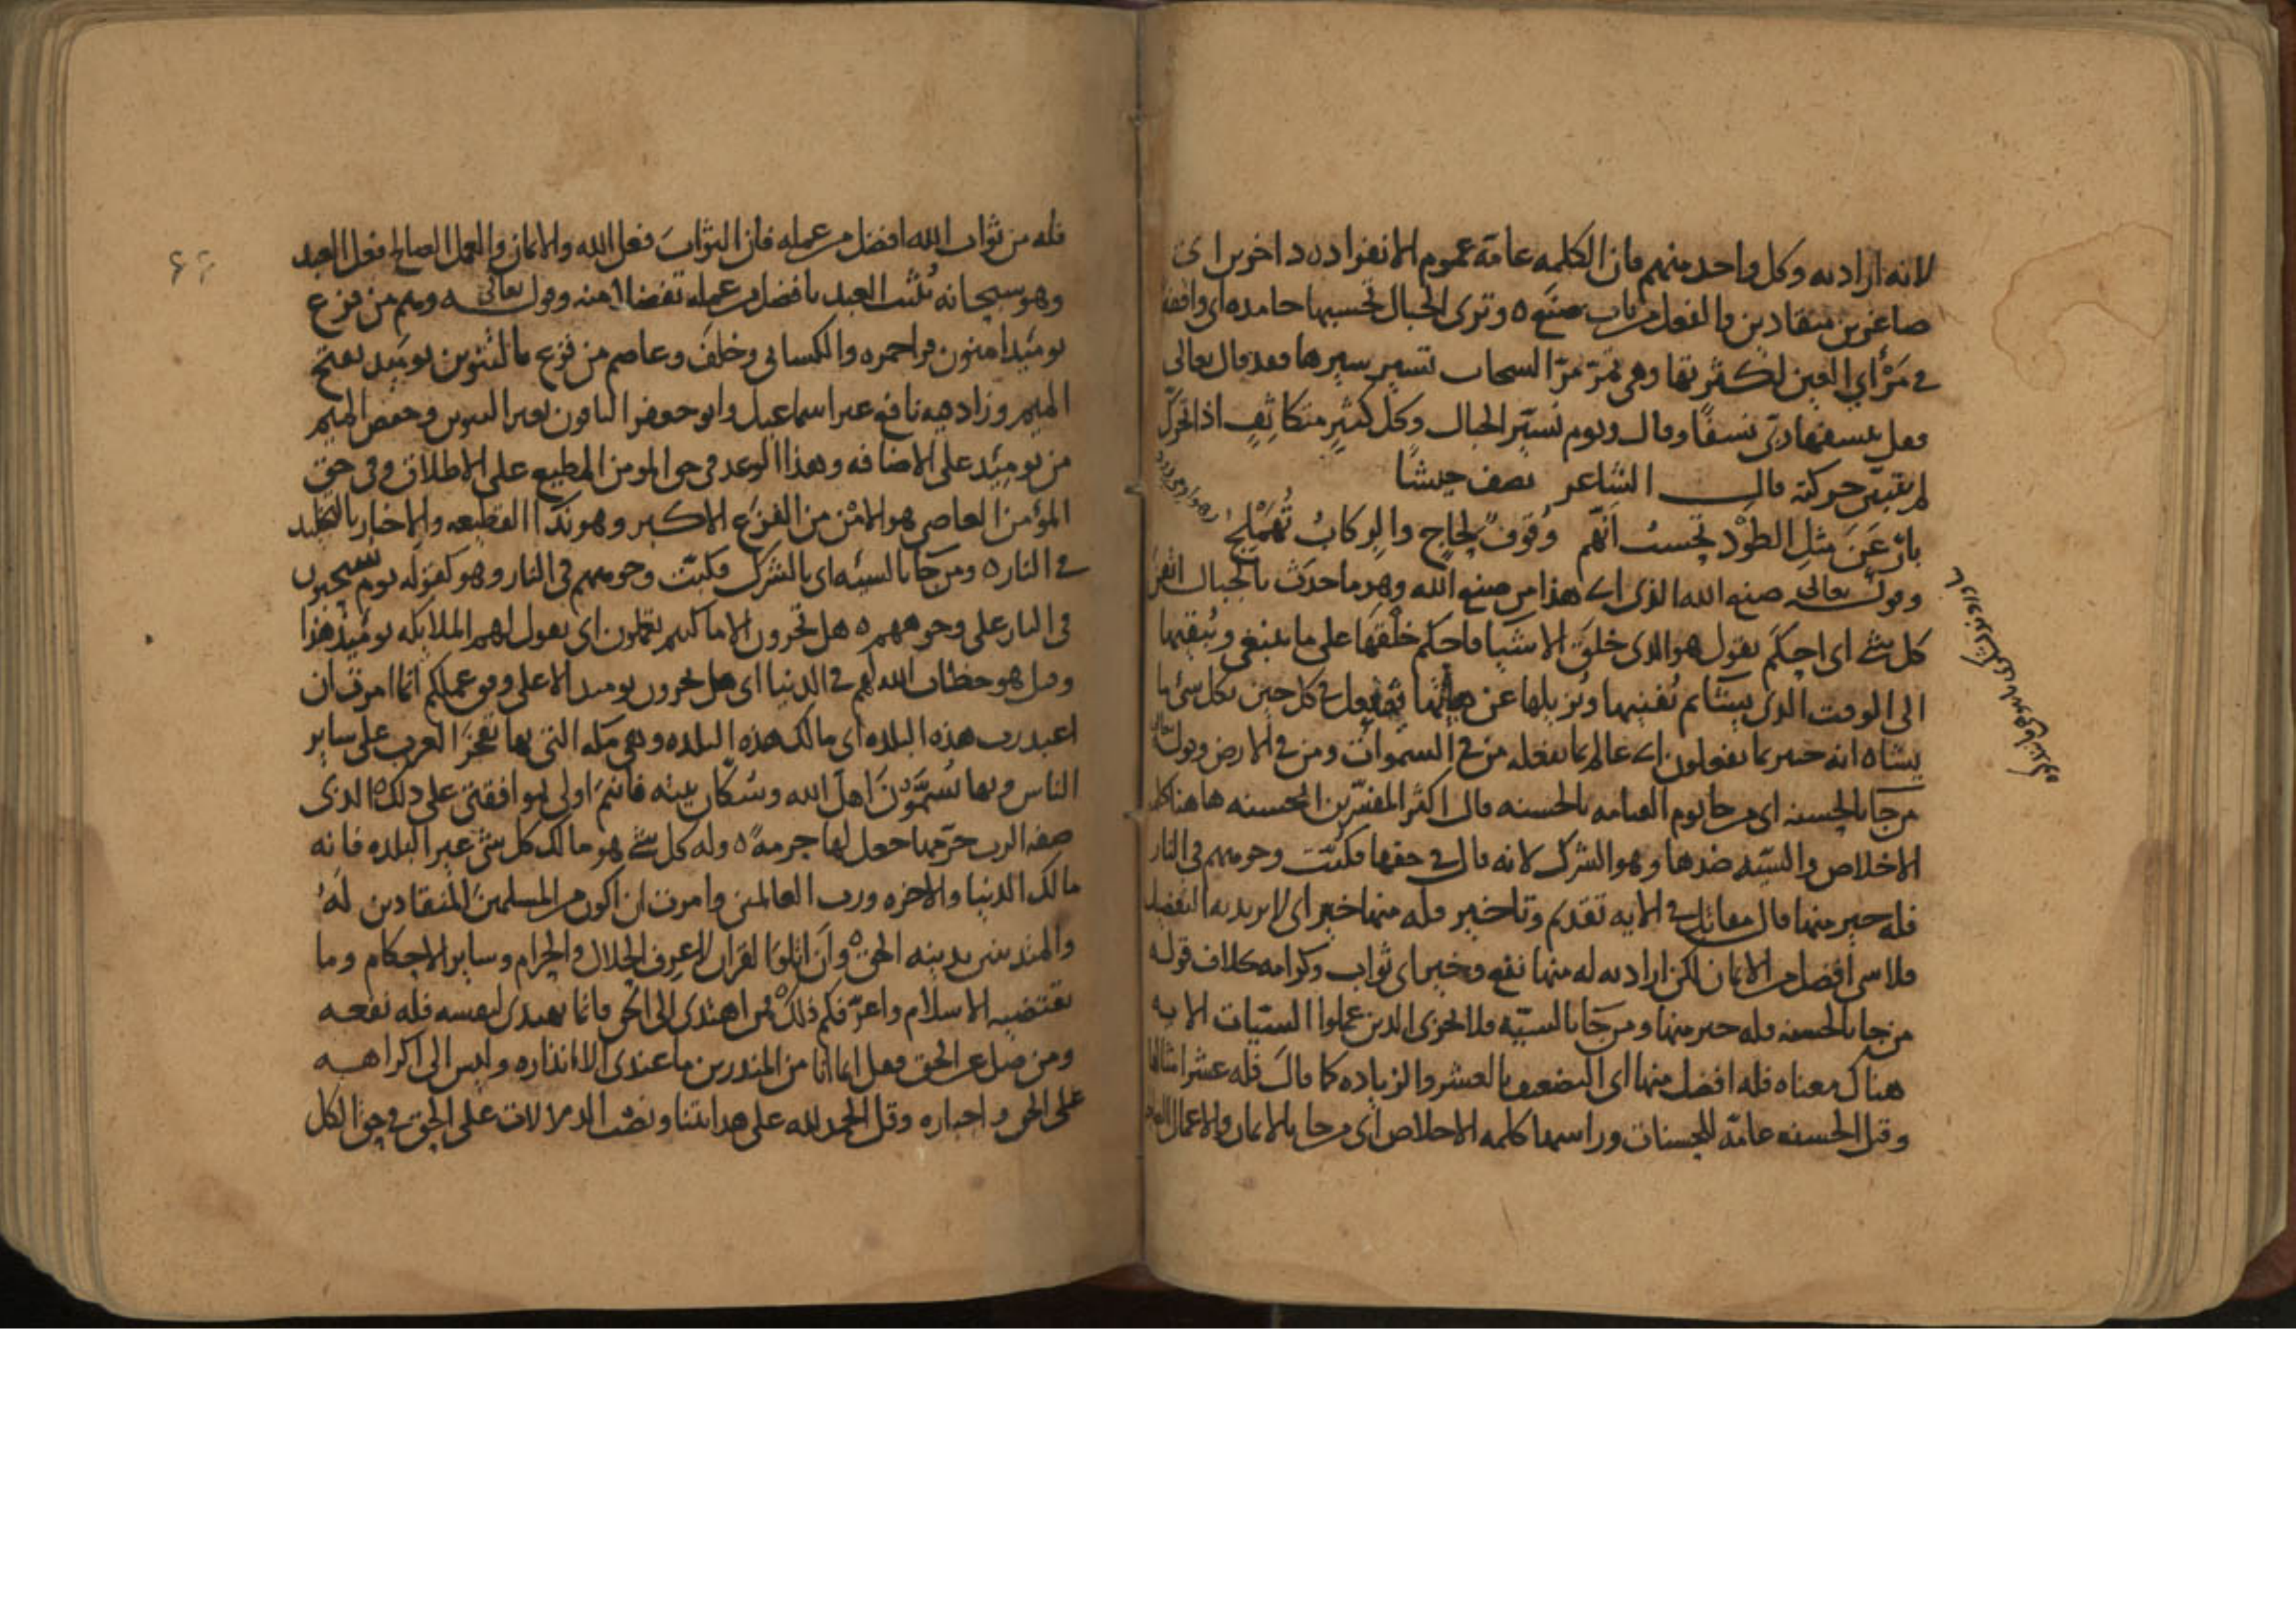 لانه اراد به وكل واحد منهم فان الكلمه عامة عموم الانفراد ه داخرين اى
صاغرين منقادين والفعل من باب صنع ه وترى الجبال تحسبها جامده اى واقفه
في مرأى العين لكثرتها وهى تمرّ مرّ السحاب تسير سيرها وقد قال تعالى
فقل ينسفها ربّى نسفًا وقال ويوم نسيّر الجبال وكل كثيرٍ متكاثفٍ اذا تحرّك
لم تتبيّن حركته قال الشاعر يصف جيشًا
بارْعَنَ مثلِ الطَوْد تحسبُ انّهم وُقوفٌ لحاجٍ والرِكابُ تُهَمْلِجُ
وقوله تعالى صنع الله الذى اى هذا من صنع الله وهو ما حدث بالجبال اتقن
كل شئ اى احكم يقول هو الذى خلق الاشيا فاحكم خلقها على ما ينبغى ويُبقيها
الى الوقت الذى يشا ثم يُفنيها ويُزيلها عن فيفعل في كل حين بكل شئ ما
يشا ه انه خبير بما يفعلون اى عالم بما يفعله من في السموات ومن في الارض وقوله تعالى
من جا بالحسنه اى من جا يوم القيامه بالحسنه قال اكثر المفسّرين الحسنه هاهنا كلمة
الاخلاص والسيّئه ضدها وهو الشرك لانه قال في حقها فكبّت وجوههم في النار
فله خير منها قال مقاتل في الايه تقديم وتاخير فله منها خير اى لا يريد به التفضيل
فلا شى افضل من الايمان لكن اراد به له منها نفع وخير اى ثواب وكرامه كلاف قوله
من جا بالحسنه فله خير منها ومن جا بالسيّئه فلا يجزى الذين عملوا السيّات الايه
هناك معناه فله افضل منها اى التضعيف بالعشر والزياده كما قال فله عشر امثالها
وقيل الحسنه عامّة للحسنات وراسها كلمه الاخلاص اى من جا بالايمان والاعمال
فله من ثواب الله افضل من عمله فان الثواب فعل الله والايمان والعمل الصالح فعل العبد
وهو سبحانه يُثيب العبد بافضل من عمله تفضلا منه وقوله تعالى ه وهم من فزع
يومئذ امنون قراحمزه والكسائى وخلف وعاصم من فزع بالتنوين يومئذ بفتح
الميم وزاد فيه نافع غير اسماعيل وابو جعفر الباقون بغير التنوين وخفض الميم
من يومئذ على الاضافه وهذا الوعد في حق المومن المطيع على الاطلاق وفى حق
المؤمن العاصى هو الامْن من الفزع الاكبر وهو ندا القطيعه والاخبار بالتخليد
في النار ه ومن جا بالسيئه اى بالشرك فكبّت وجوههم في النار وهو كقوله يوم يسحبون
في النار على وجوههم ه هل تجزون الا ما كنتم تعملون اى يقول لهم الملائكه يومئذ هذا
وقيل هو خطاب الله لهم في الدنيا اى هل تجزون يومئذ الا على وفق عملكم انما امرت ان
اعبد رب هذه البلده اى مالك هذه البلده وهى مكه التى بها تفخر العرب على ساير
الناس وبها تُسَمَّوْنَ اهل الله وسُكّان بيته فانتم اولى بموافقتى على ذلك ه الذى
صفة الرب حرّمها جعل لها حرمةً ه وله كل شئ هو مالك كل شئ غير البلده فانه
مالك الدنيا والاخره ورب العالمين وامرت ان اكون من المسلمين المنقادين لهُ
والمتدينين بدينه الحق ه وان اتلوا القران لاعرف الحلال والحرام وساير الاحكام وما
يقتضيه الاسلام واعرّفكم ذلك ه فمن اهتدى الى الحق فانما يهتدى لنفسه فله نفعه
ومن ضل عن الحق فقل انما انا من المنذرين ما عندى الا انذاره وليس الى اكراهه
على الحق واجباره وقل الحمد لله على هدايتنا ونصب الدلالات على الحق في حق الكل